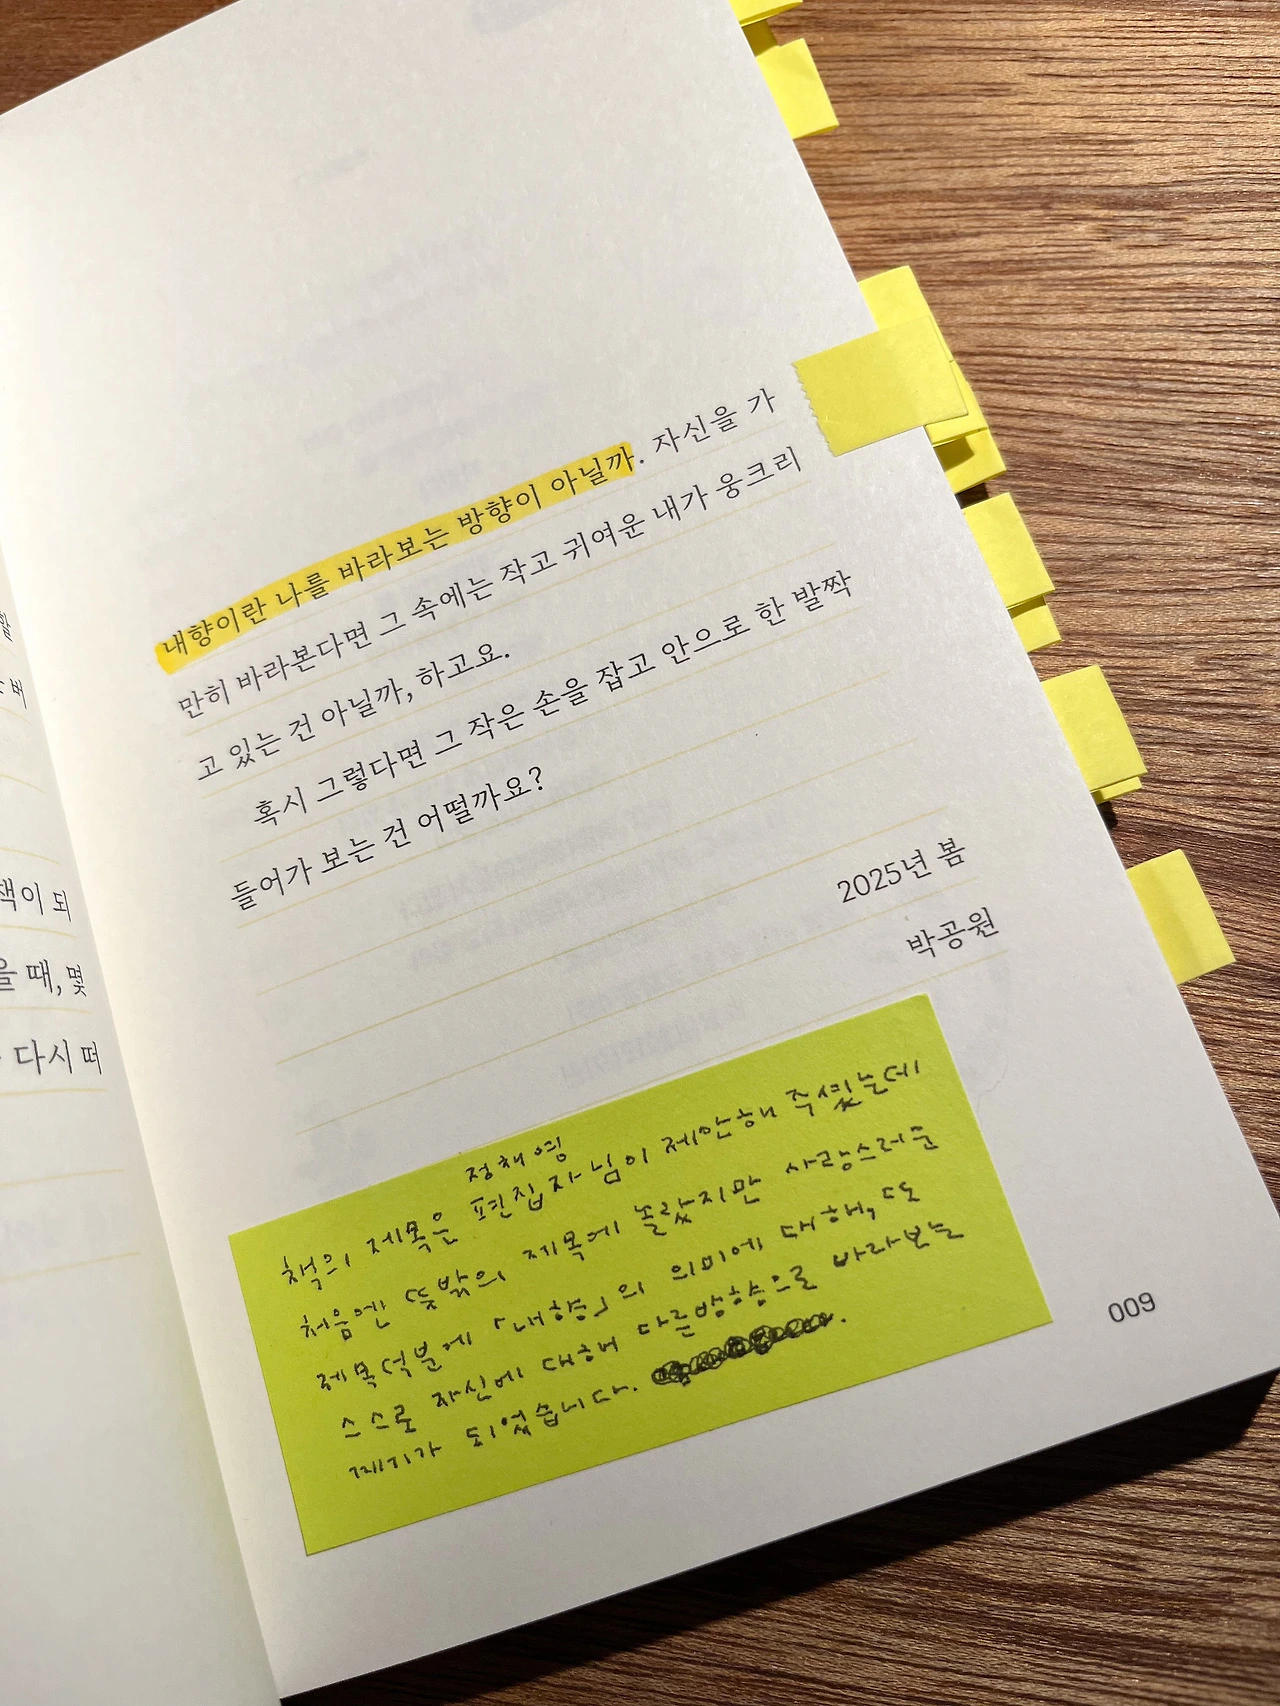 할
버
책이 되
을 때, 몇
다시 떠
내향이란 나를 바라보는 방향이 아닐까. 자신을 가
만히 바라본다면 그 속에는 작고 귀여운 내가 웅크리
고 있는 건 아닐까, 하고요.
혹시 그렇다면 그 작은 손을 잡고 안으로 한 발짝
들어가 보는 건 어떨까요?
2025년 봄
박공원
정채영
책의 제목은 편집자님이 제안해 주셨는데
처음엔 뜻밖의 제목에 놀랐지만 사랑스러운
제목덕분에 「내향」의 의미에 대해, 또
스스로 자신에 대해 다른방향으로 바라보는
계기가 되었습니다.
009